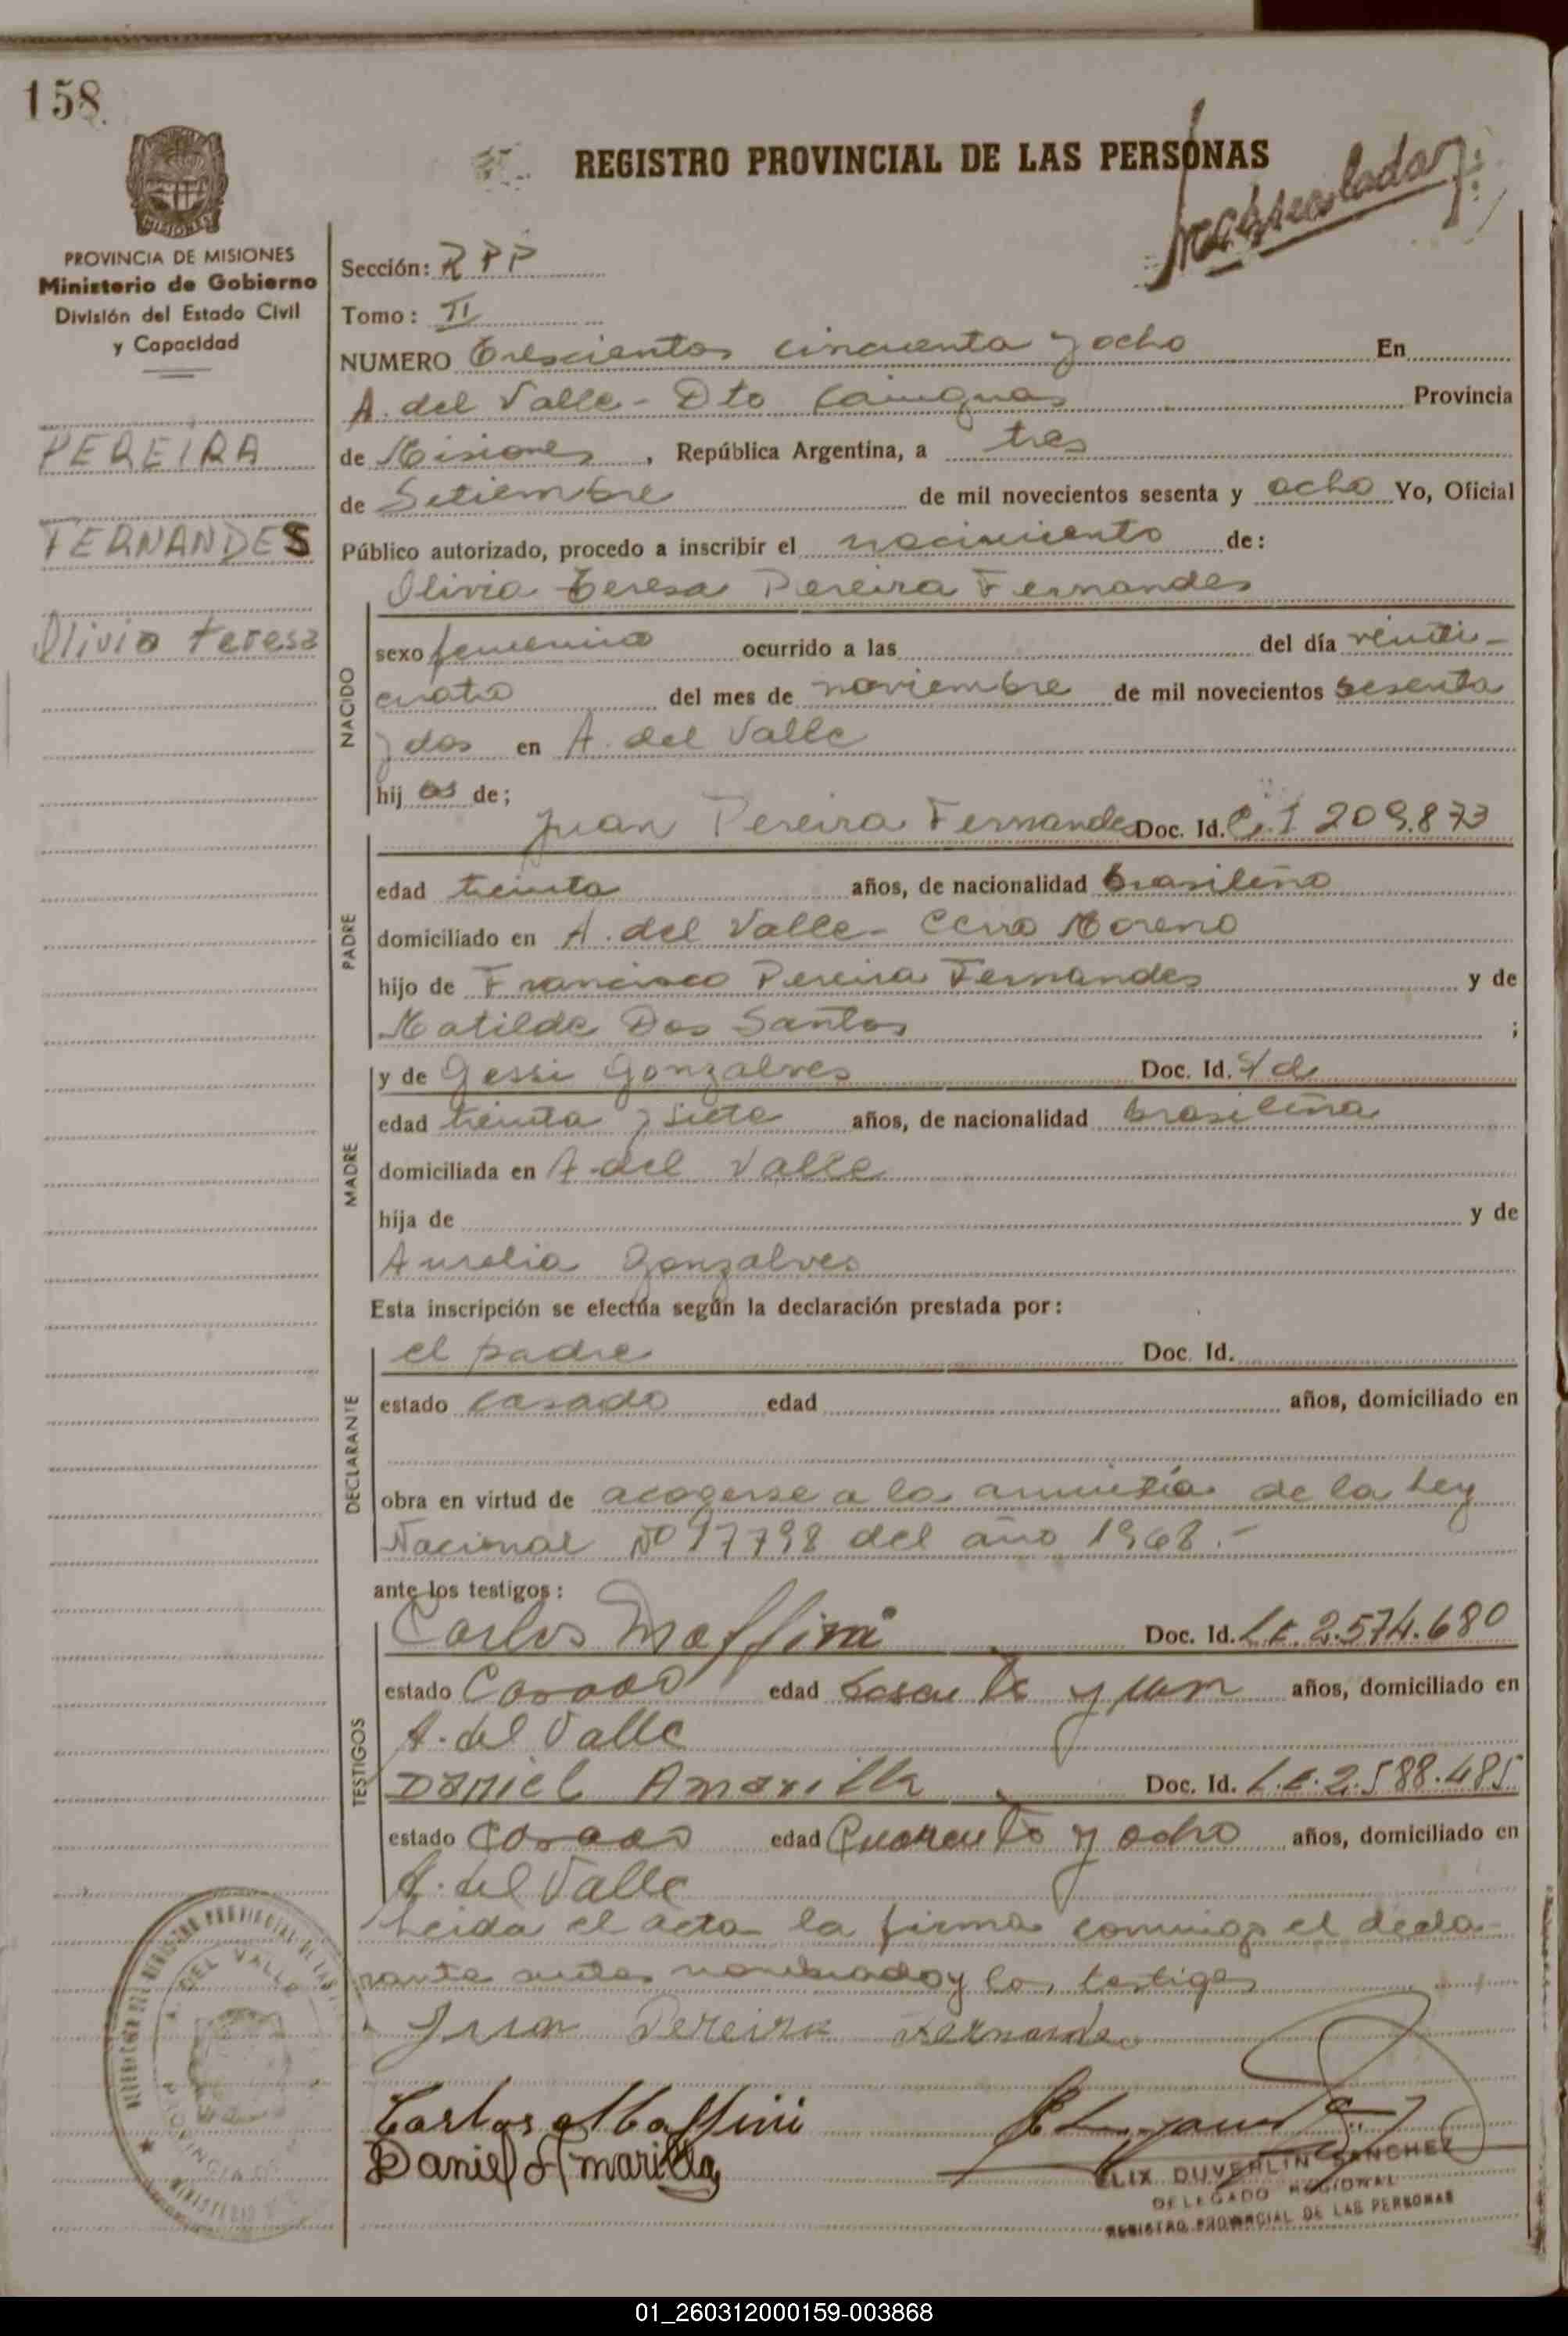 158
REGISTRO PROVINCIAL DE LAS PERSONAS
MISIONES
PROVINCIA DE MISIONES
Ministerio de Gobierno
División del Estado Civil
y Capacidad
PEREIRA
FERNANDES
Olivia teresa
Sección: R P P
Tomo: II
NUMERO Trescientos cincuenta y ocho En
A. del Valle - Dto Cainguas Provincia
de Misiones, República Argentina, a tres
de Setiembre de mil novecientos sesenta y ocho Yo, Oficial
Público autorizado, procedo a inscribir el nacimiento de:
Olivia Teresa Pereira Fernandes
NACIDO
sexo femenino ocurrido a las del día veinti-
cuatro del mes de noviembre de mil novecientos sesenta
y dos en A. del Valle
hij as de;
PADRE
Juan Pereira Fernandes Doc. Id. C. I 209.873
edad treinta años, de nacionalidad brasileño
domiciliado en A. del Valle - Cerro Moreno
hijo de Francisco Pereira Fernandes y de
Matilde Dos Santos ;
MADRE
y de Gessi Gonzalves Doc. Id. S/d
edad treinta y siete años, de nacionalidad brasileña
domiciliada en A. del Valle
hija de y de
Aurelia Gonzalves
Esta inscripción se efectúa según la declaración prestada por:
DECLARANTE
el padre Doc. Id.
estado casado edad años, domiciliado en
obra en virtud de acogerse a la amnistía de la Ley
Nacional Nº 17798 del año 1968.-
ante los testigos:
TESTIGOS
Carlos Maffini Doc. Id. L.E. 2.574.680
estado Casado edad sesenta y un años, domiciliado en
A. del Valle
Daniel Amarilla Doc. Id. L.E. 2.588.485
estado Casado edad Cuarenta y ocho años, domiciliado en
A. del Valle
Leida el acta la firma conmigo el decla-
rante antes nombrado y los testigos
Juan Pereira Fernandes
Carlos Maffini
Daniel Amarilla
ELIX DUVERLIN SANCHEZ
DELEGADO REGIONAL
REGISTRO PROVINCIAL DE LAS PERSONAS
A. DEL VALLE
01_260312000159-003868